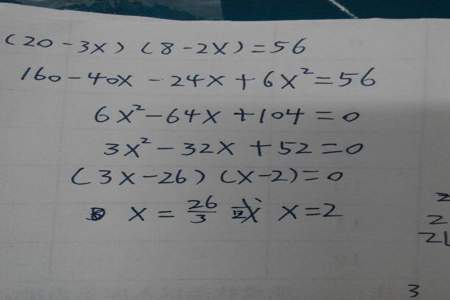 (20-3x)(8-2x)=56
160-40x-24x+6x²=56
6x²-64x+104=0
3x²-32x+52=0
(3x-26)(x-2)=0
x=26/3 x=2
2
2
21
3